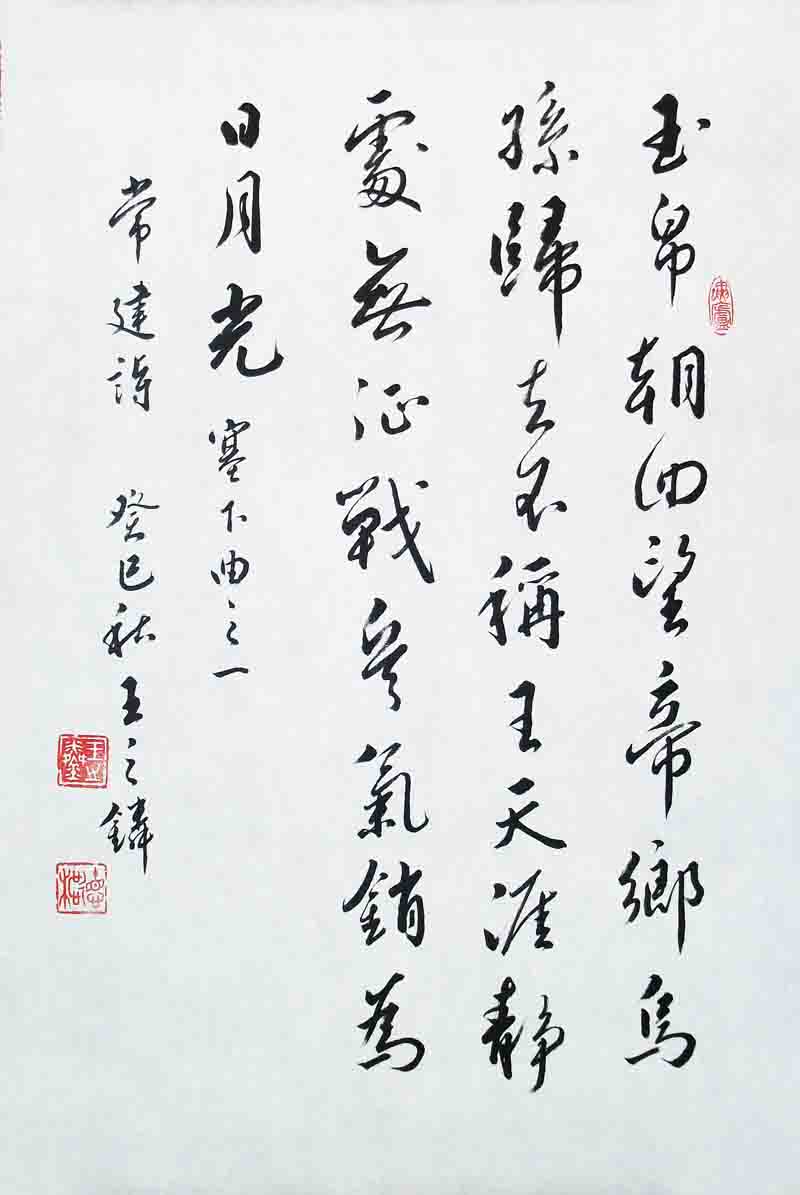 玉帛朝回望帝鄉烏
孫歸去不稱王天涯静
處無征戰兵氣銷為
日月光 塞下曲之一
常建詩 癸巳秋王之鏻